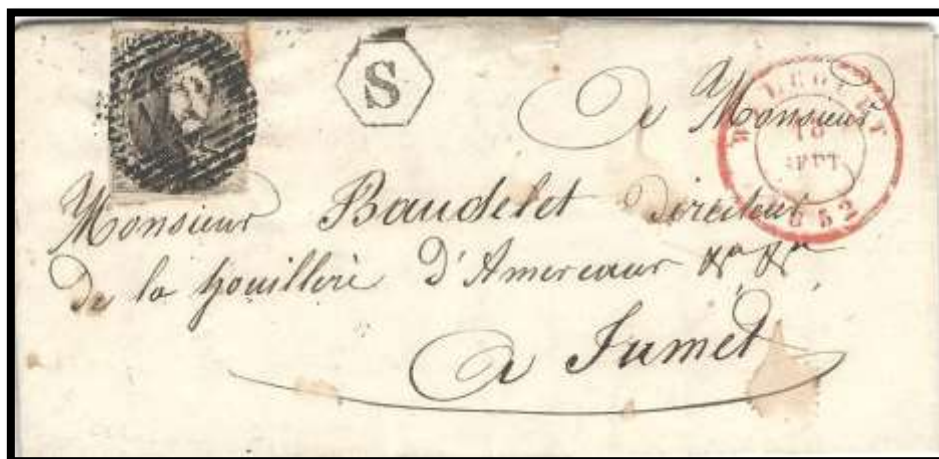 S
a Monsieur
SEPT
Monsieur Baudelet Directeur
De la houillère d'Amercœur &ª &ª
a Jumet